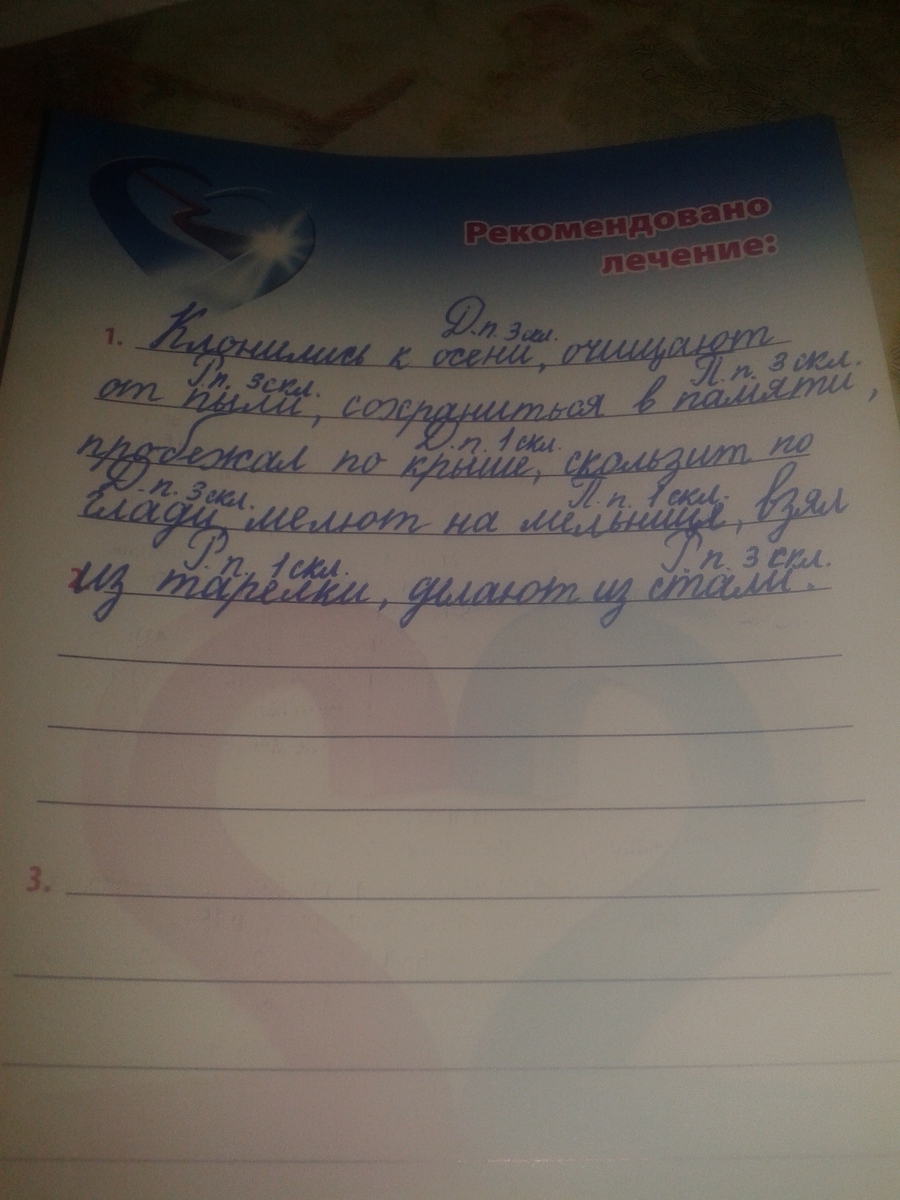 Рекомендовано
лечение:
Д.п. 3 скл.
1. Клонились к осени, очищают
Р.п. 3 скл. П.п. 3 скл.
от пыли, сохраниться в памяти,
Д.п. 1 скл.
пробежал по крыше, скользит по
Д.п. 3 скл. П.п. 1 скл.
глади, мелют на мельнице, взял
Р.п. 1 скл. Р.п. 3 скл.
из тарелки, делают из стали.
3.